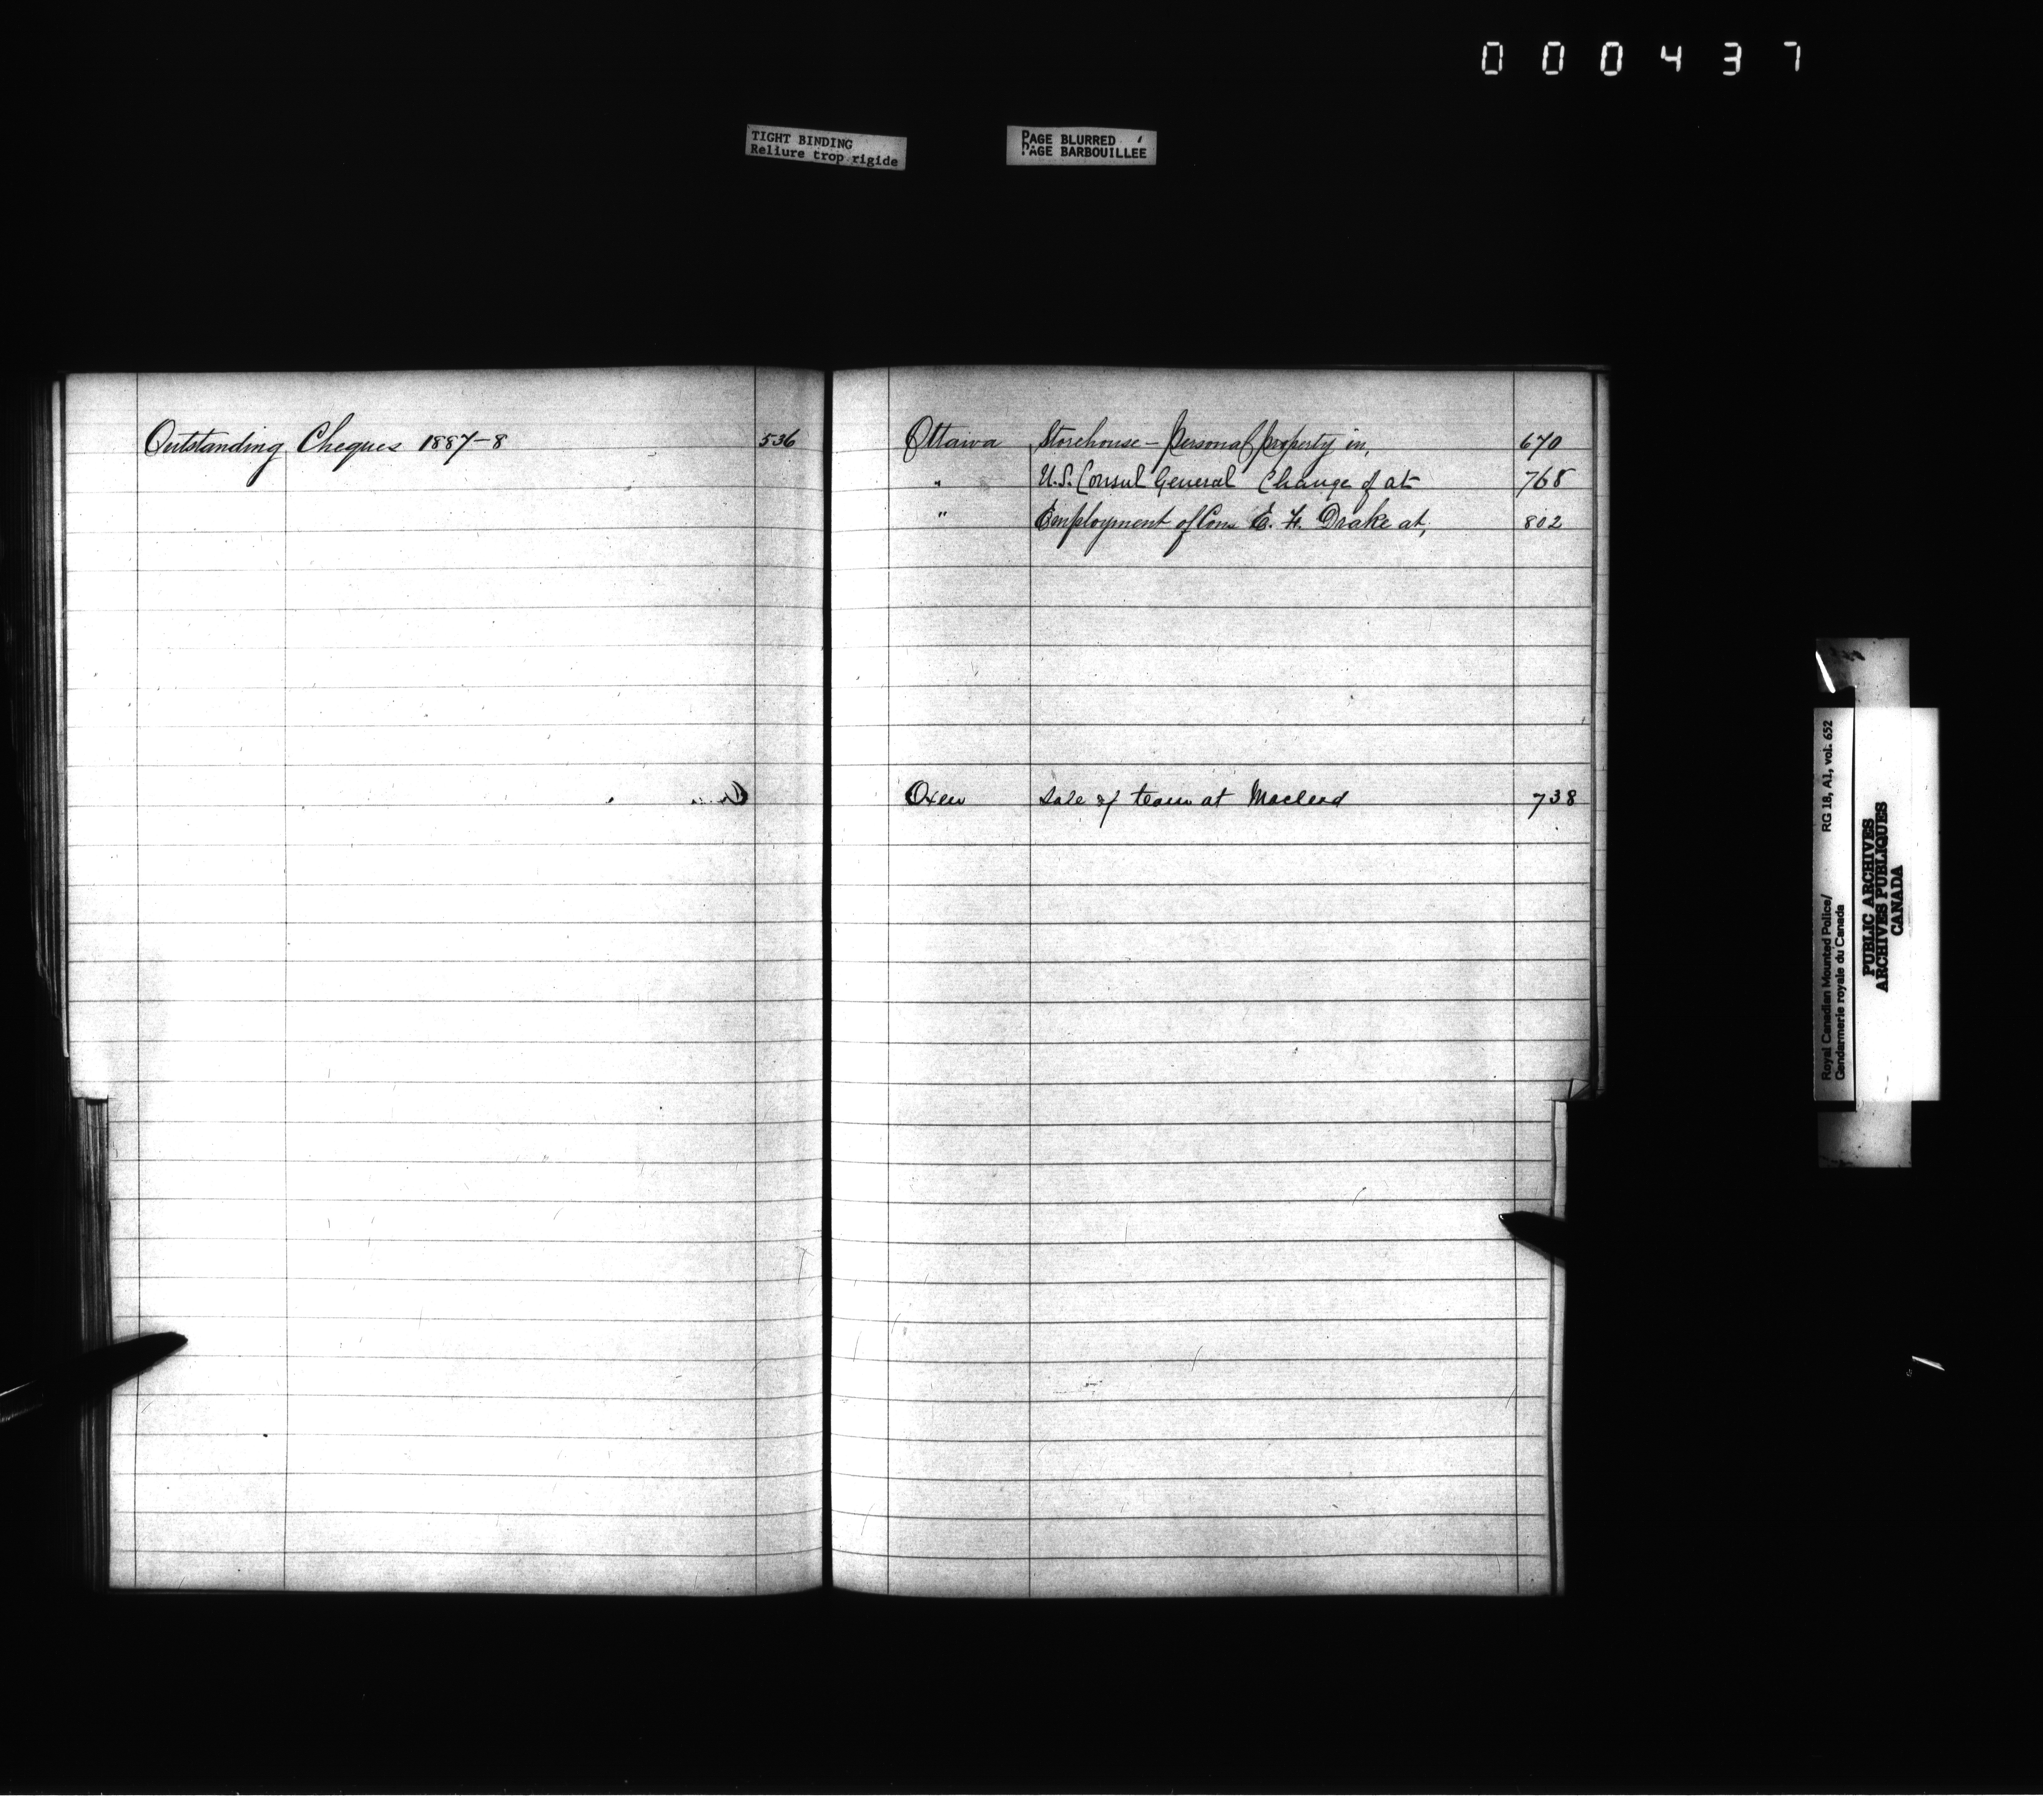 000437
TIGHT BINDING
Reliure trop rigide
PAGE BLURRED
PAGE BARBOUILLÉE
Outstanding Cheques 1887-8 536
Ottawa Storehouse - Personal property in, 670
" U.S. Consul General Change of at 768
" Employment of Cons E. F. Drake at, 802
Oxen Sale of team at Macleod 738
Royal Canadian Mounted Police/ RG 18, A1, vol. 652
Gendarmerie royale du Canada
PUBLIC ARCHIVES
ARCHIVES PUBLIQUES
CANADA